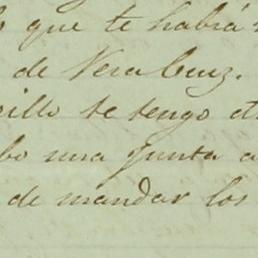 que te habrá
de Vera Cruz.
te tengo
una junta a
de mandar los